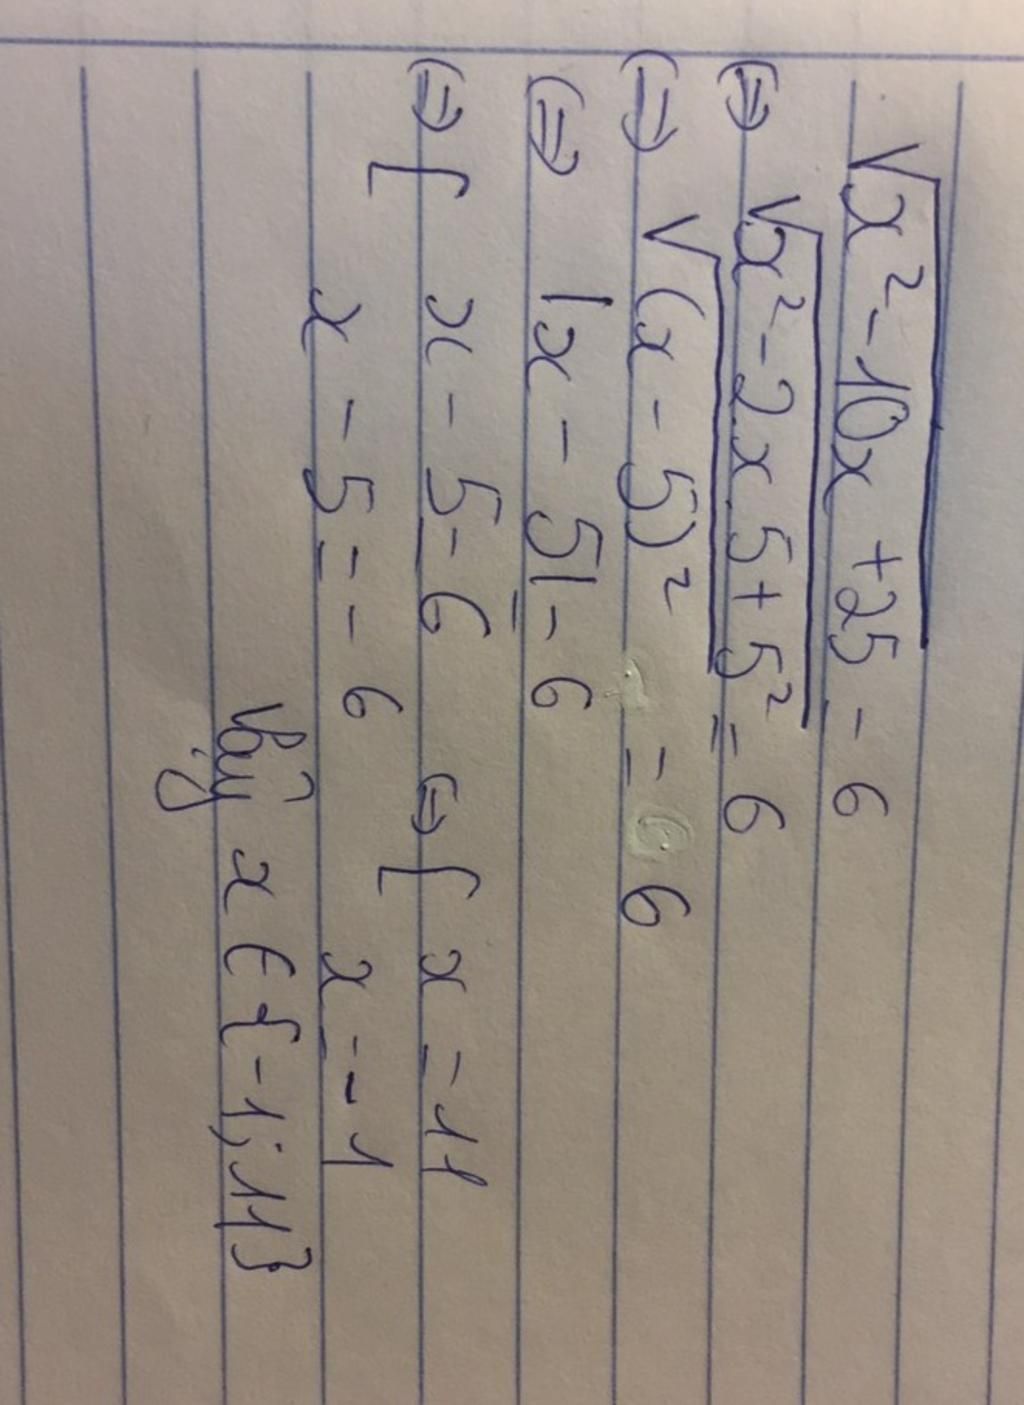 √x² - 10x + 25 = 6
⇔ √x² - 2.x.5 + 5² = 6
⇔ √(x - 5)² = 6
⇔ |x - 5| = 6
⇔ [ x - 5 = 6 ⇔ [ x = 11
x - 5 = - 6 x = -1
Vậy x ∈ {-1; 11}